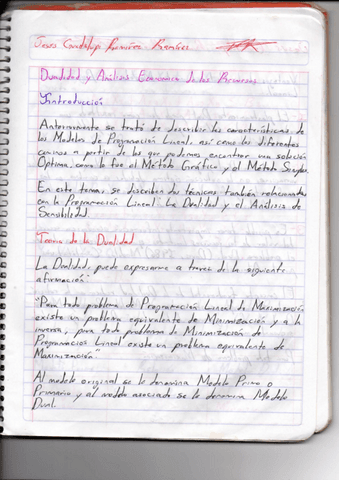 Dualidad y Análisis Económico de los Recursos
Introducción
Anteriormente se trató de describir las características de
los Modelos de Programación Lineal, así como los diferentes
caminos a partir de los que podemos encontrar una solución
Optima, como lo fue el Método Gráfico y el Método Simplex
En este tema, se describen dos técnicas también relacionadas
con la Programación Lineal: La Dualidad y el Análisis de
Sensibilidad.
Teoría de la Dualidad
La Dualidad, puede expresarse a través de la siguiente
afirmación:
"Para todo problema de Programación Lineal de Maximización
existe un problema equivalente de Minimización y a la
inversa, para todo problema de Minimización de
Programación Lineal existe un problema equivalente de
Maximización".
Al modelo original se le denomina Modelo Primo o
Primario y al modelo asociado se le denomina Modelo
Dual.